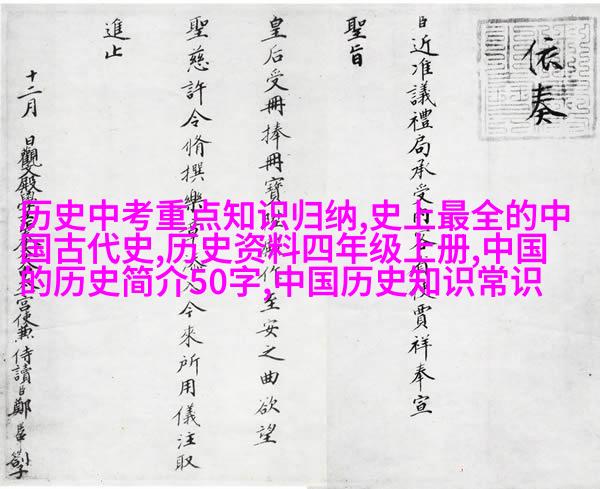 依奏
近准議禮局承受賈祥奉宣
聖旨
皇后受冊捧冊寶作至安之曲欲望
聖慈許令脩撰樂章添入今來所用儀注取
進止
十二月 日觀文殿學宮使兼侍讀臣鄭
历史中考重点知识归纳,史上最全的中
国古代史,历史资料四年级上册,中国
的历史简介50字,中国历史知识常识